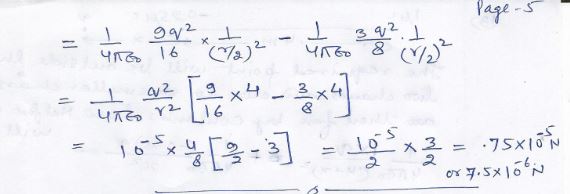 Page-5
= 1/4πε₀ 9q²/16 × 1/(r/2)² - 1/4πε₀ 3q²/8 · 1/(r/2)²
= 1/4πε₀ q²/r² [9/16 × 4 - 3/8 × 4]
= 10⁻⁵ × 4/8 [9/2 - 3] = 10⁻⁵/2 × 3/2 = .75×10⁻⁵ N
or 7.5×10⁻⁶ N